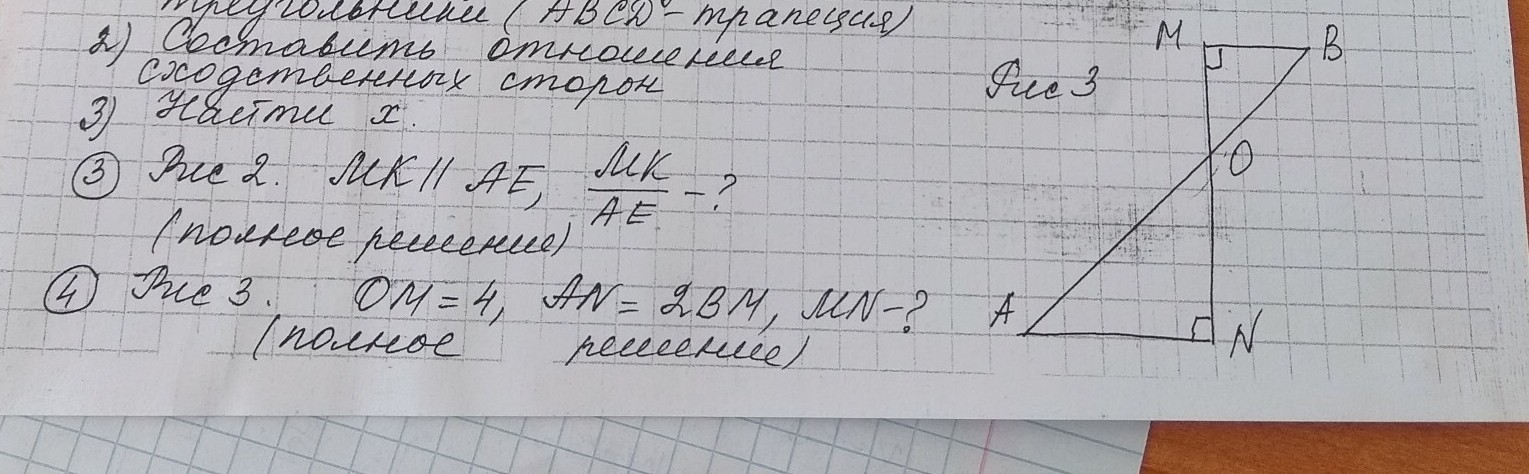 треугольники (ABCD - трапеция)
2) Составить отношения
сходственных сторон
3) Найти x.
③ Рис 2. MK || AE, MK/AE - ?
(полное решение)
④ Рис 3. OM = 4, AN = 2BM, MN - ?
(полное решение)
Рис 3
M
B
O
A
N